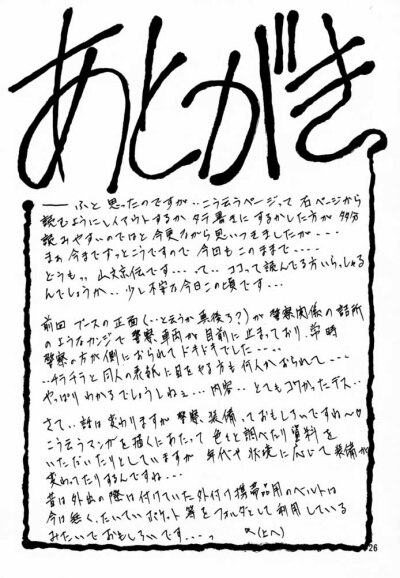 あとがき
── ふと思ったのですが‥こう云うページって右ページから
読むようにレイアウトするかタテ書きにするかした方が多分
読みやすいのではと今更ながら思いつきましたが・・・
まぁ今までずっとこうですので今回もこのままで・・・・
どうも,,山文京伝です・・・って・・ココって読んでる方いらっしゃる
んでしょうか・・少し不安な今日この頃です・・・
前回ブースの正面(・・と云うか真後ろ?)が警察関係の詰所
のようなカンジで警察車両が目前に止まっており、常時
警察の方が側におられてドキドキでした・・・・
・・チラチラと同人の表紙に目をやる方も何人かおられて・・・
やっぱりわかるでしょうしねぇ…内容・・とてもコワかったデス・・
さて・・話は変わりますが警察、装備っておもしろいですね〜
こう云うマンガを描くにあたって色々と調べたり資料を
いただいたりとしていますが年代や状況に応じて装備が
変わってたりするんですね・・・
昔は外出の際は付けていた外付け携帯品用のベルトは
今は無く、たいていポケット等をフォルダとして利用している
みたいでおもしろいです・・・っ
へ(上へ)
26